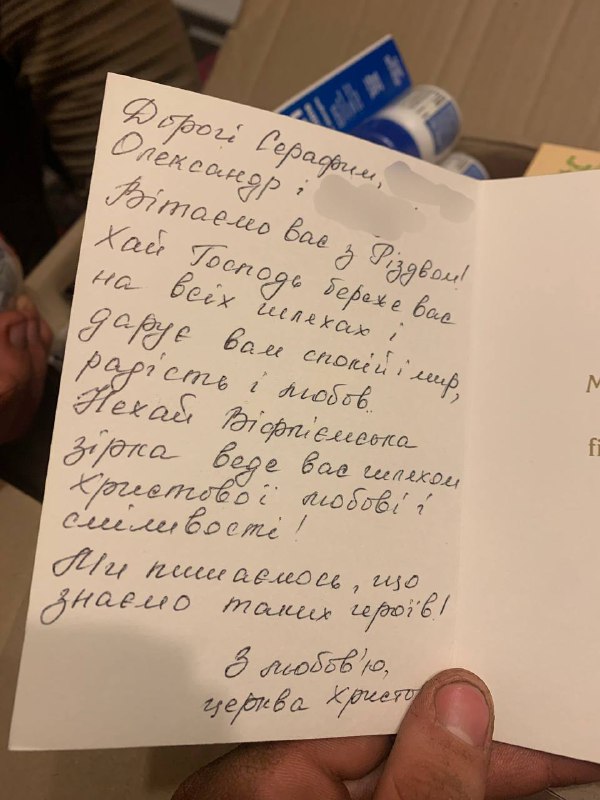 Дорогі Серафим,
Олександр і
Вітаємо вас з Різдвом!
Хай Господь береже вас
на всіх шляхах і
дарує вам спокій і мир,
радість і любов.
Нехай Віфлиємська
зірка веде вас шляхом
Христової любові і
сміливості!
Ми пишаємось, що
знаємо таких героїв!
З любов'ю,
церква Христо
M
fi